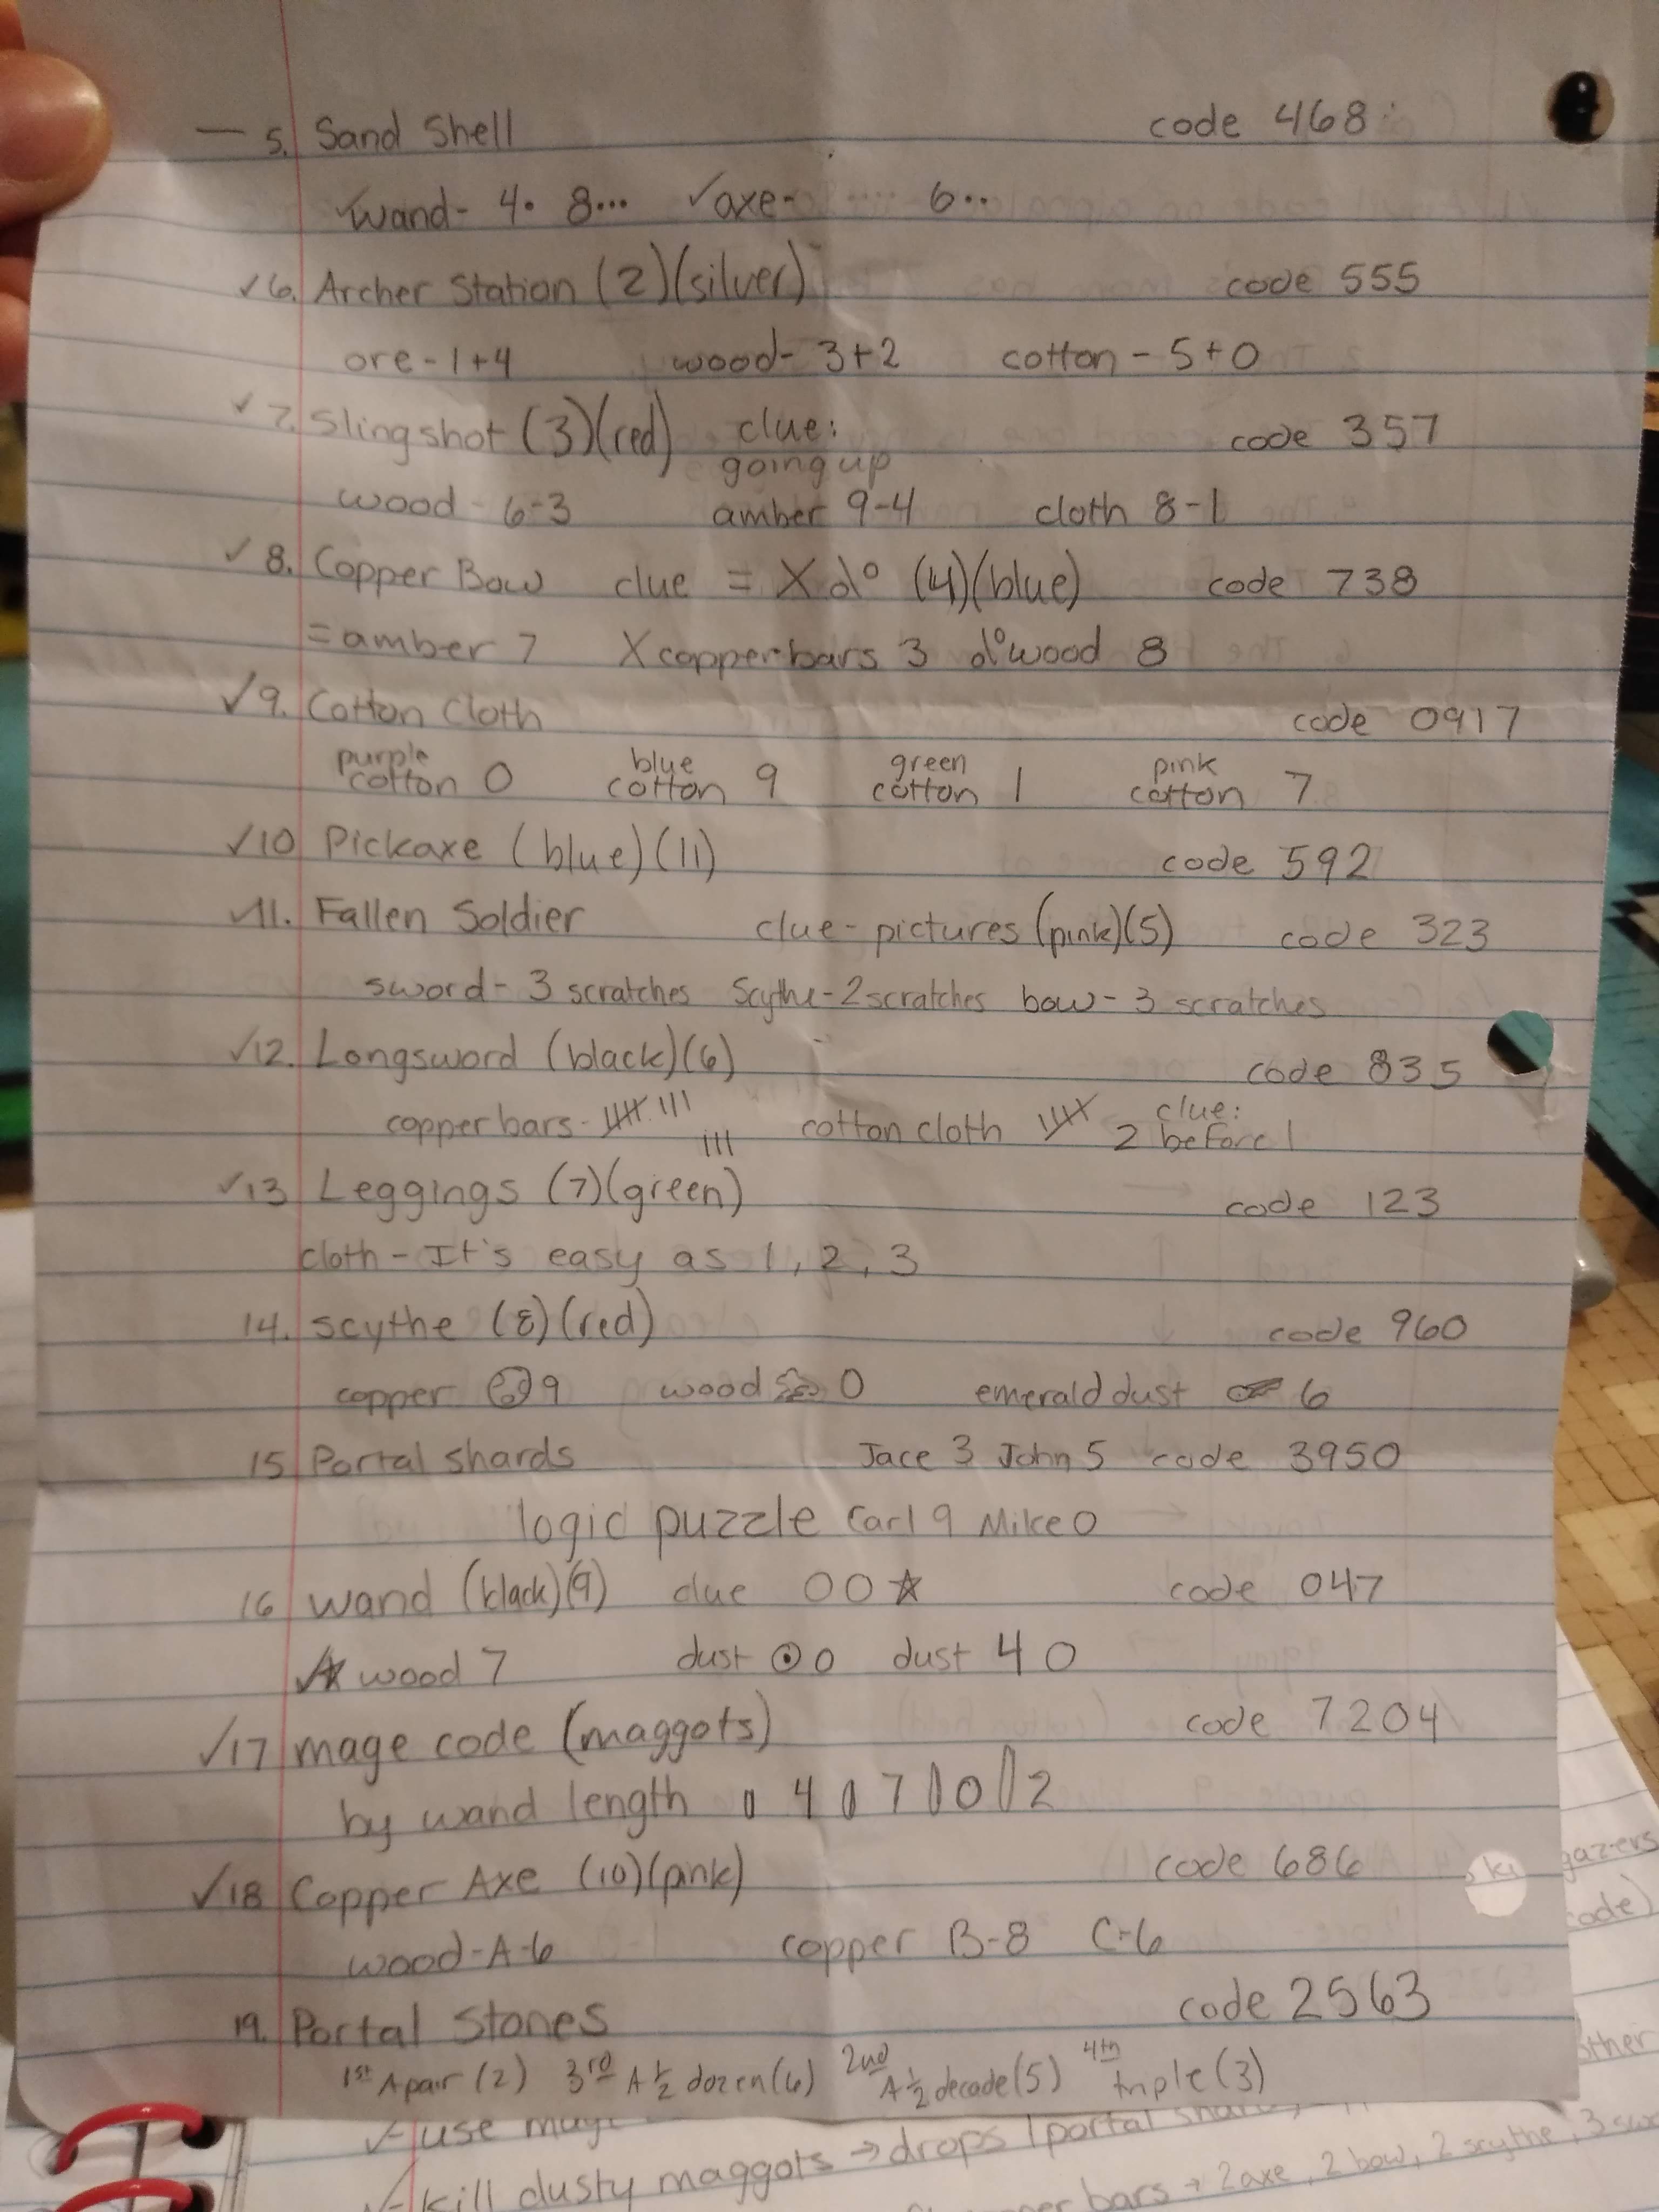 — 5. Sand Shell code 468
✓wand- 4• 8••• ✓axe- 6••
✓6. Archer Station (2)(silver) code 555
ore-1+4 wood- 3+2 cotton - 5+0
✓7. Slingshot (3)(red) clue: going up code 357
wood - 6-3 amber 9-4 cloth 8-1
✓8. Copper Bow clue = X d° (4)(blue) code 738
= amber 7 X copper bars 3 d° wood 8
✓9. Cotton Cloth code 0917
purple cotton 0 blue cotton 9 green cotton 1 pink cotton 7
✓10 Pickaxe (blue)(11) code 592
✓11. Fallen Soldier clue - pictures (pink)(5) code 323
sword- 3 scratches Scythe-2 scratches bow- 3 scratches
✓12. Longsword (black)(6) code 835
copper bars- 𝍸 III III cotton cloth 𝍸 clue: 2 before 1
✓13 Leggings (7)(green) code 123
cloth - It's easy as 1, 2, 3
14. scythe (8)(red) code 960
copper 9 wood 0 emerald dust 6
15 Portal shards Jace 3 John 5 code 3950
logic puzzle Carl 9 Mike 0
16 wand (black)(9) clue OO☆ code 047
☆ wood 7 dust ⊙ 0 dust 4 O
✓17 mage code (maggots) code 7204
by wand length 4 7 0 2
✓18 Copper Axe (10)(pink) code 686
wood-A-6 copper B-8 C-6
19. Portal Stones code 2563
1st A pair (2) 3rd A ½ dozen (6) 2nd A ½ decade (5) 4th triple (3)
gazers
code)
other
✓-use
✓-kill dusty maggots → drops 1 portal
bars → 2 axe, 2 bow, 2 scythe, 3